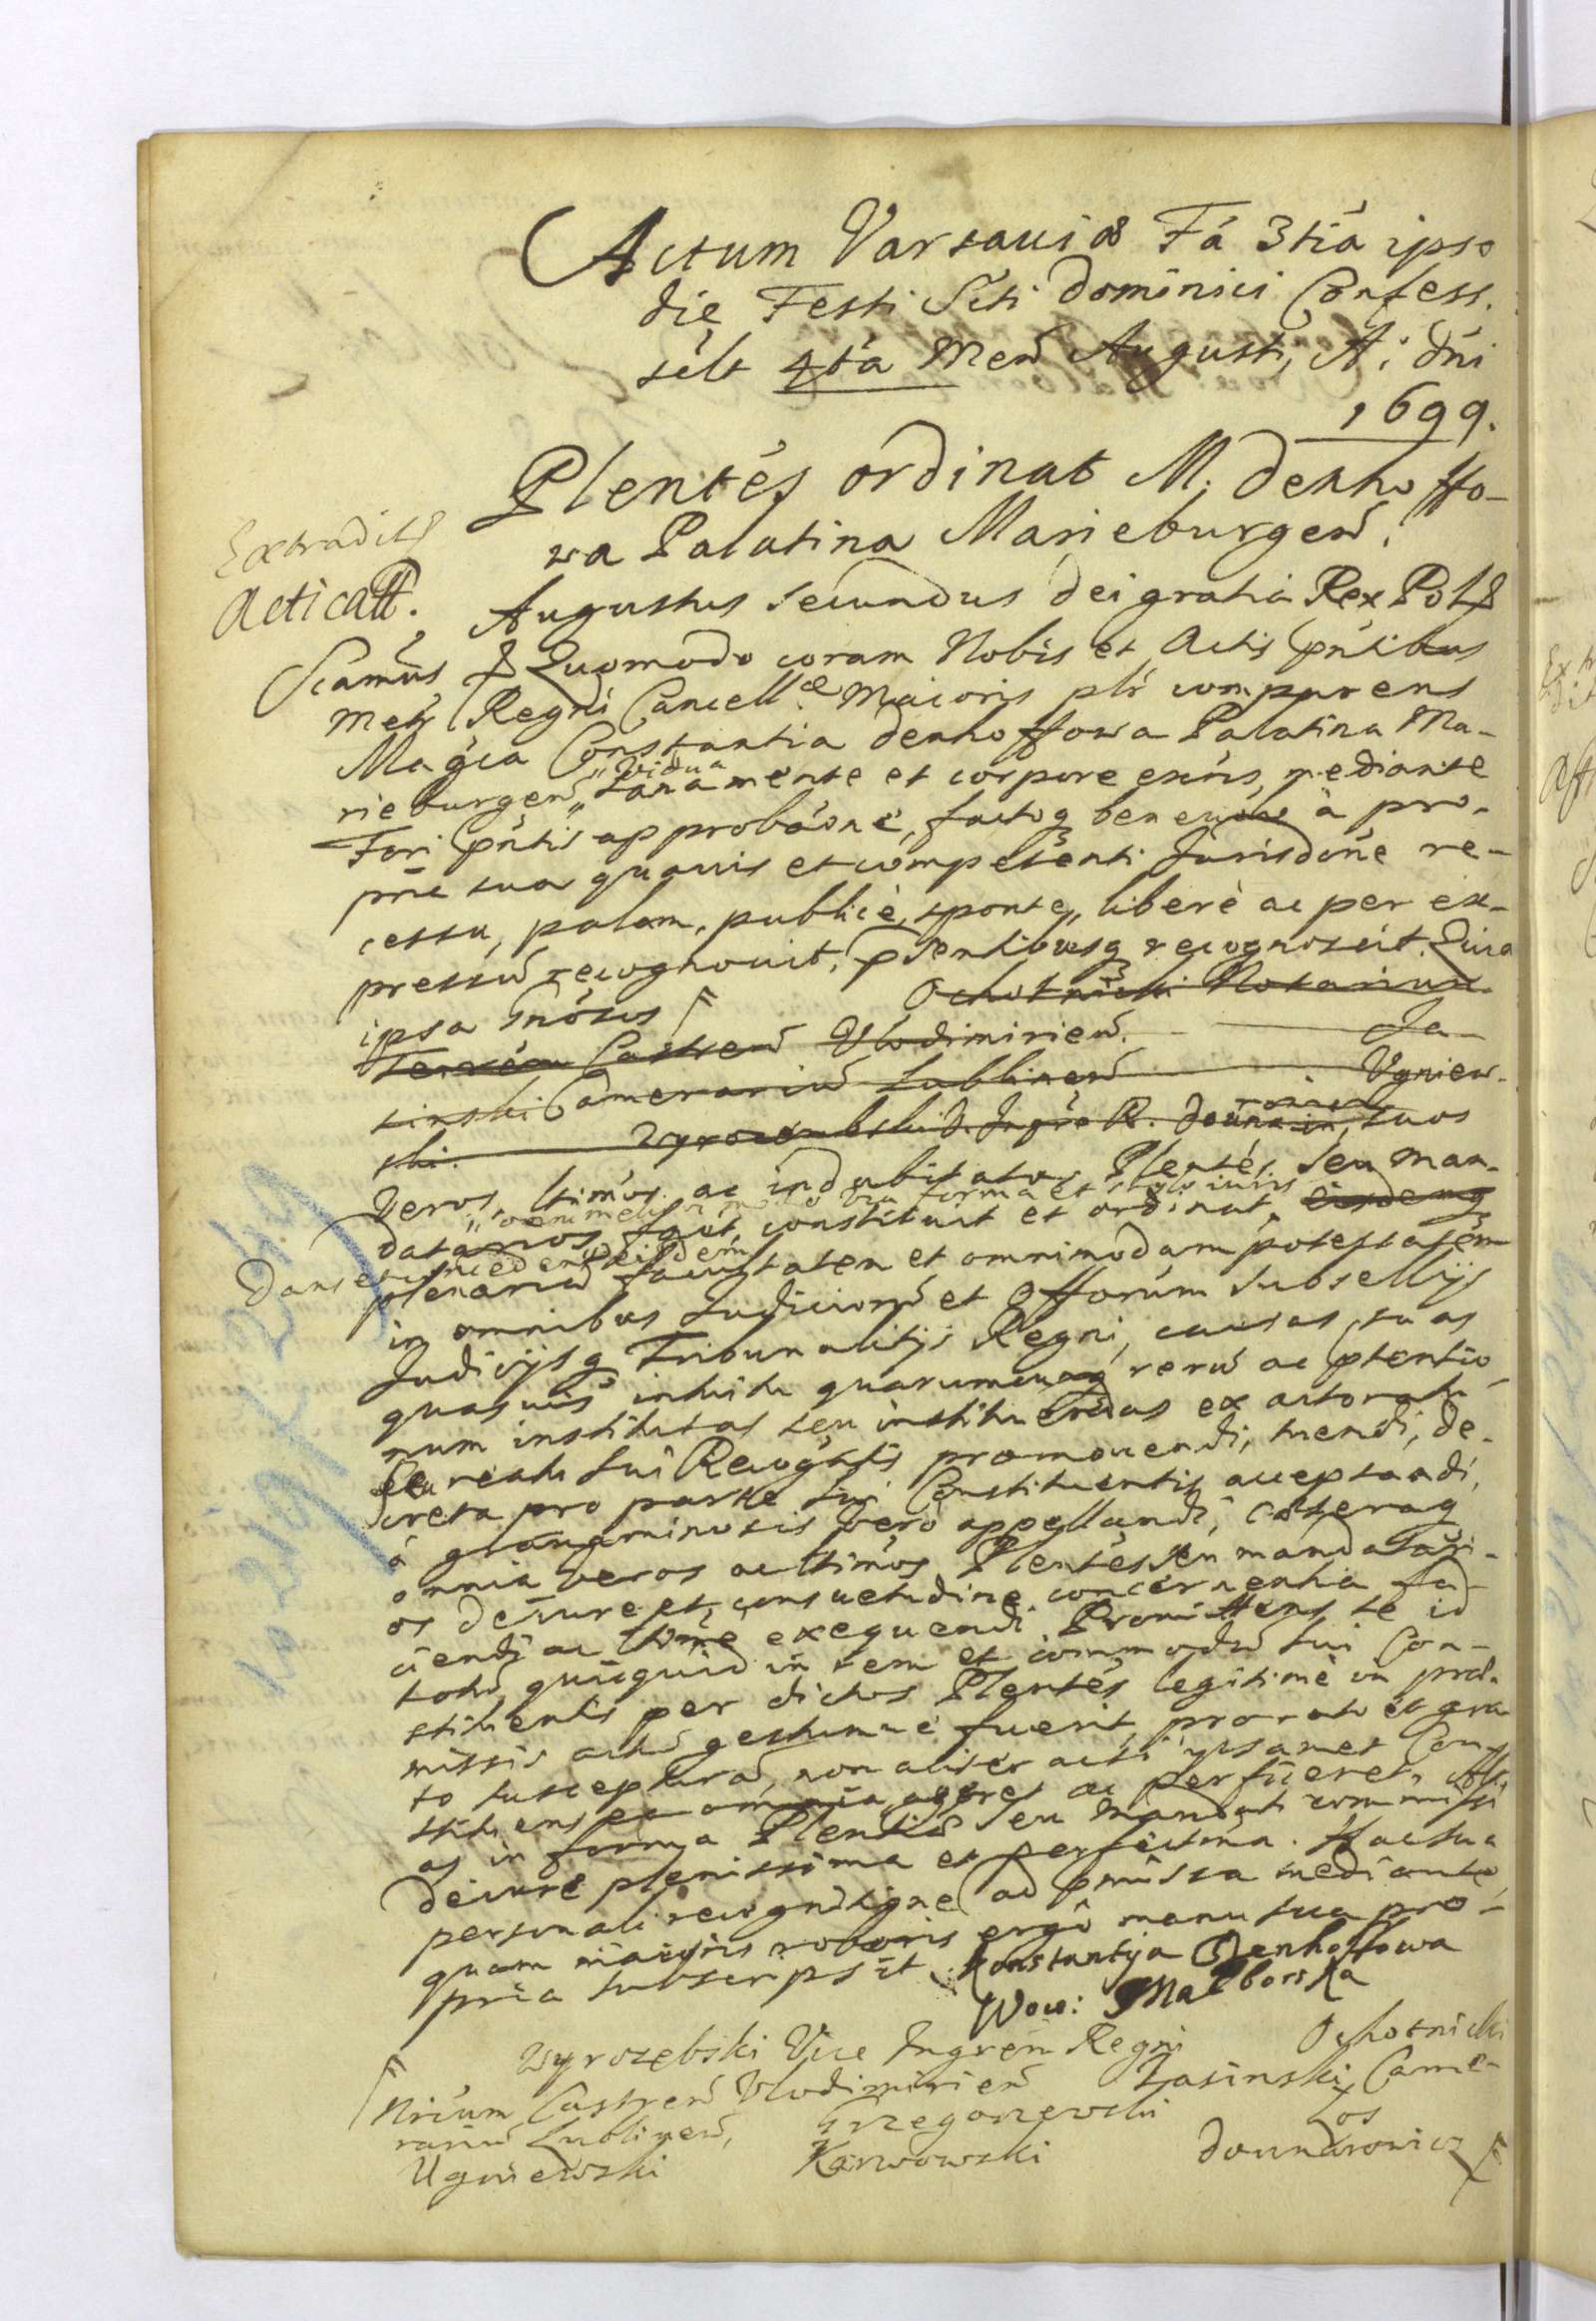 Actum Varsauiæ Fá 3tiá ipso
die Festi Scti Dominici Confess.
scilt 4tá Men Augusti, Ai Dni
1699.
Plentes ordinat M. Denhoffo-
wa Palatina Marieburgen.
Extradit
Acticatt.
Augustus Secundus Dei gratia Rex Pol
Scamus Quomodo coram Nobis et Actis pntibus
Met Regni Cancellæ Maioris plr comparens
Magca Constantia Denhoffowa Palatina Ma-
rieburgen, "Vidua" sana mente et corpore exns, mediante
Fori pntis approbaone, factoq benevole à pro-
prie sua quavis et competenti Jurisdone re-
cessu, palam, publicè, sponte, liberè ac per ex-
pressu recognovit, Psentibusq recognoscit. Quia
ipsa Gnosus F Ochotnicki Notarium
Terrem Castren Vlodimirien. Ja-
sinski Camerarium Lublinen Ugniew-
ski. Wyrozembski Dounarowicz, suos
Veros, ltimos ac indubitatos Plentes seu Man-
datarios fecit, constituit et ordinat, eisdemq
"omni meliori modo via forma et stylo iuris
Dans et concedens eisdem
plenariã facultatem et omnimodam potestatem
in omnibus Judiciorũ et Offorum Subsellijs
Judicijsq Tribunalitijs Regni, causas suas
quasuis intuitu quarumcunq rerũ ac Ptentio-
num institutas seu instituendas ex actoratu
seu reatu sui Recogtis promouendi, tuendi, de-
creta pro parte sui Constituentis acceptandi,
à grauaminosis verò appellandi, cæteraq
omnia veros ac ltimos Plentes seu mandatari-
os de iure et consuetudine concernentia fa-
ciendi ac ltime exequendi. Promittens se id
totũ quicquid in rem et commodũ sui Con-
stituentis per dictos Plentes legitimè in præ-
missis actũ gestumue fuerit, pro rato et gra-
to suscepturã, non aliter acsi ipsamet Con-
stituens ea omnia ageret ac perficeret,
in forma Plentiæ seu Mandati commissi
de iure plenissima et perfectima. Hac sua
personali recognitione ad pmissa mediante
quam maioris roboris ergò manu sua pro-
pria subscripsit. Konstantyia Denhoffowa
Wow: Malborska
F Wyrozębski Vice Ingren Regni Ochotnicki
Nrium Castren Vlodimirien Jasinski Came-
rariũ Lublinen, Grzegorzewski Łos
Ugniewski Karwowski Dounarowicz F